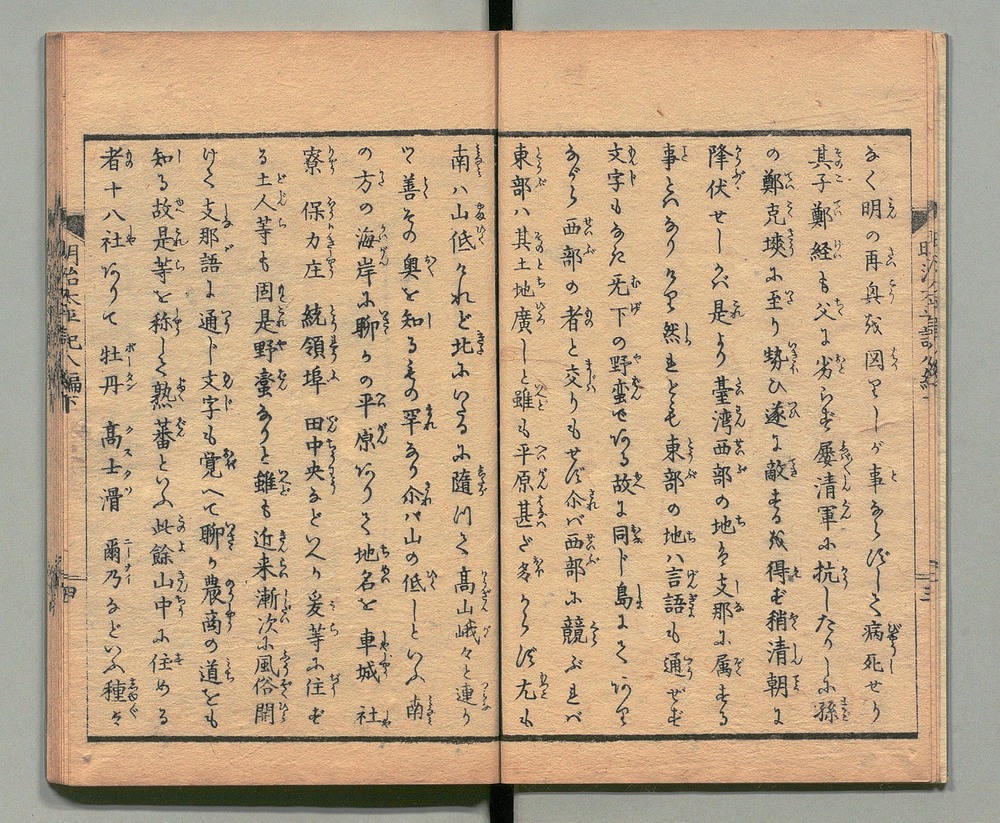 なく明の再興を図りしが事ならずして病死せり
其子鄭経も父に劣らず屡清軍に抗したりしに孫
の鄭克塽に至り勢ひ遂に敵する を得ず稍清朝に
降伏せしかば是より臺湾西部の地は支那に属する
事とはなりけり然れとも東部の地ハ言語も通ぜず
文字もなき无下の野蛮にてある故に同じ島にて ありながら西部の者と交りもせず尒バ西部に競ぶれバ
東部ハ其土地廣しと雖も平原甚だ多からず尤も
南ハ山低けれど北にいたるに随つて高山峨々と連り
て善その奥を知るもの罕なり尒ハ山の低しといふ南
の方の海岸に聊かの平原ありて地名を 車城 社
寮 保力庄 統領埠 田中央などいへり爰等に住す
る土人等も固是野蛮なりと雖も近来漸次に風俗開
けて支那語に通じ文字も覚へて聊か農商の道をも
知る故是等を称して熟蕃といふ此餘山中に住める
者十八社ありて 牡丹 高士滑 爾乃などいふ種々
明治太平記八編下